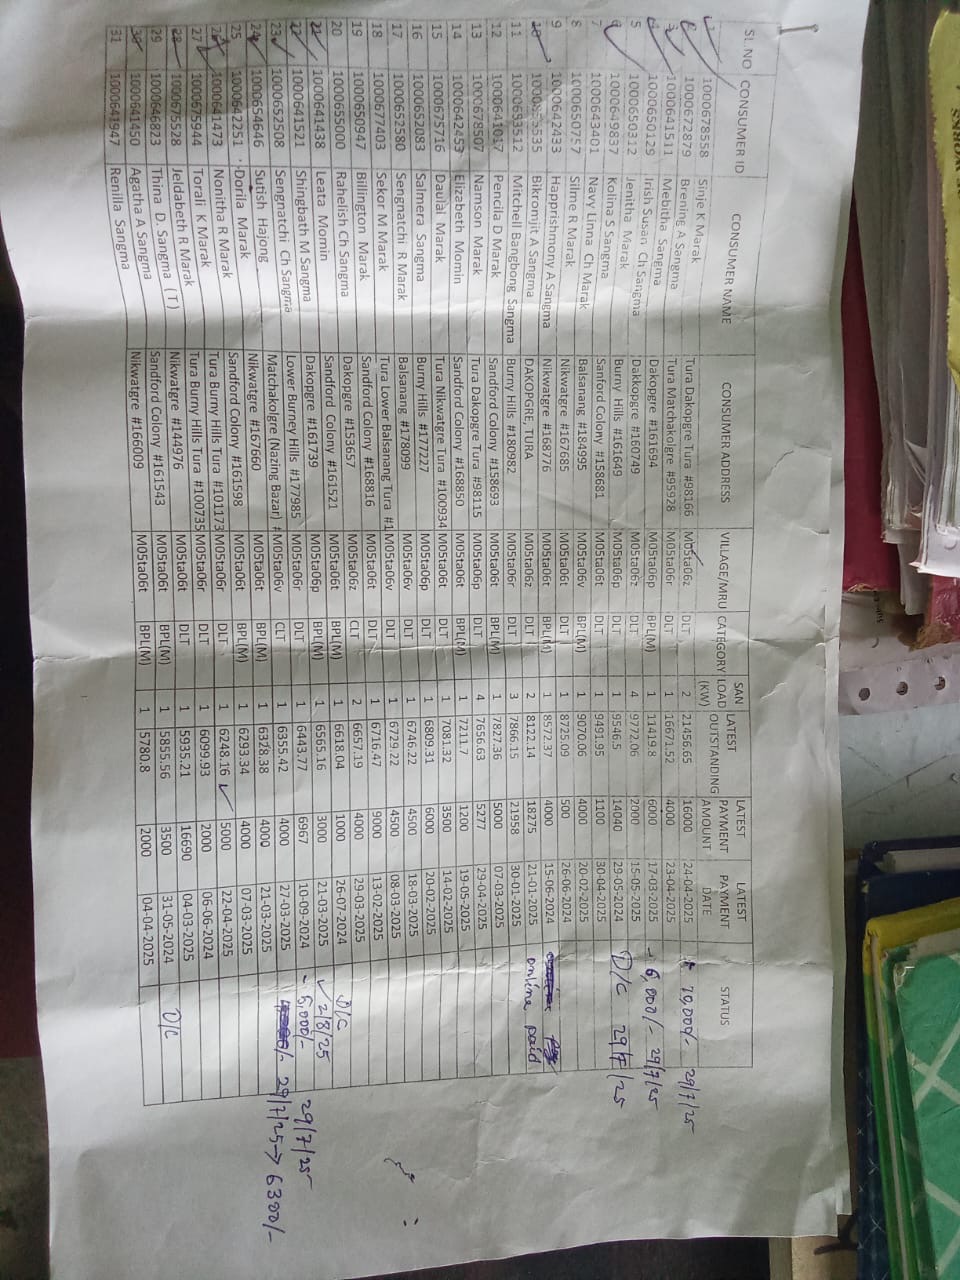 SL.NO CONSUMER ID CONSUMER NAME CONSUMER ADDRESS VILLAGE/MRU CATEGORY SAN LOAD (KW) LATEST OUTSTANDING LATEST PAYMENT AMOUNT LATEST PAYMENT DATE STATUS
1000678558 Sinje K Marak Tura Dakopgre Tura #98166 M05ta06z DLT 2 21456.65 16000 24-04-2025 70,000/- 29/7/25
1000672879 Brening A Sangma Tura Matchakolgre #95928 M05ta06r DLT 1 16671.52 4000 23-04-2025
1000641511 Mebitha Sangma Dakopgre #161694 M05ta06p BPL(M) 1 11419.8 6000 17-03-2025 - 6,000/- 29/7/25
1000650129 Irish Susan Ch Sangma Dakkopgre #160749 M05ta06z DLT 4 9772.06 2000 15-05-2025
5 1000650312 Jenitha Marak Burny Hills #161649 M05ta06p DLT 1 9546.5 14040 29-05-2024 D/C 29/7/25
1000649837 Kolina S Sangma Sanford Colony #158681 M05ta06t DLT 1 9491.95 1100 30-04-2025
7 1000643401 Navy Linna Ch Marak Balsanang #184995 M05ta06v BPL(M) 1 9070.06 4000 20-02-2025
8 1000650757 Silme R Marak Nikwatgre #167685 M05ta06t DLT 1 8725.09 500 26-06-2024
9 1000642433 Happrishmony A Sangma Nikwatgre #168776 M05ta06t BPL(M) 1 8572.37 4000 15-06-2024
10 Bikromjit A Sangma DAKOPGRE, TURA M05ta06z DLT 2 8122.14 18275 21-01-2025 online paid
11 1000653512 Mitchell Bangbong Sangma Burny Hills #180982 M05ta06r DLT 3 7866.15 21958 30-01-2025
12 1000641017 Pencila D Marak Sandford Colony #158693 M05ta06t BPL(M) 1 7827.36 5000 07-03-2025
13 1000678507 Namson Marak Tura Dakopgre Tura #98115 M05ta06p DLT 4 7656.63 5277 29-04-2025
14 1000642453 Elizabeth Momin Sandford Colony #168850 M05ta06t BPL(M) 1 7211.7 1200 19-05-2025
15 1000675716 Daulal Marak Tura Nikwatgre Tura #100934 M05ta06t DLT 1 7081.32 3500 14-02-2025
16 1000652083 Salmera Sangma Burny Hills #177227 M05ta06p DLT 1 6809.31 6000 20-02-2025
17 1000652580 Sengnatchi R Marak Balsanang #178099 M05ta06v DLT 1 6746.22 4500 18-03-2025
18 1000677403 Sekor M Marak Tura Lower Balsanang Tura #1 M05ta06v DLT 1 6729.22 4500 08-03-2025
19 1000650947 Billington Marak Sandford Colony #168816 M05ta06t DLT 1 6716.47 9000 13-02-2025
20 1000655000 Rahelish Ch Sangma Dakopgre #153657 M05ta06z CLT 2 6657.19 4000
21 1000641438 Leata Momin Sandford Colony #161521 M05ta06t BPL(M) 1 6618.04 1000 26-07-2024 D/C
22 1000641521 Shingbath M Sangma Dakopgre #161739 M05ta06p BPL(M) 1 6565.16 3000 21-03-2025 2/8/25
23 1000652508 Sengnatchi Ch Sangma Lower Burney Hills #177985 M05ta06r DLT 1 6443.77 6967 10-09-2024 - 5,000/- 29/7/25
24 1000654646 Sutish Hajong Matchakolgre (Nazing Bazar) # M05ta06v CLT 1 6355.42 4000 27-03-2025 29/7/25 → 6300/-
25 1000642251 Dorila Marak Nikwatgre #167660 M05ta06t BPL(M) 1 6328.38 4000 21-03-2025
26 1000641473 Nomitha R Marak Sandford Colony #161598 M05ta06t BPL(M) 1 6293.34 4000 07-03-2025
27 1000675944 Torali K Marak Tura Burny Hills Tura #101173 M05ta06r DLT 1 6248.16 5000 22-04-2025
28 1000675528 Jeldabeth R Marak Tura Burny Hills Tura #100735 M05ta06r DLT 1 6099.93 2000 06-06-2024
29 1000646823 Thina D. Sangma (T) Nikwatgre #144976 M05ta06t DLT 1 5935.21 16690 04-03-2025
30 1000641450 Agatha A Sangma Sandford Colony #161543 M05ta06t BPL(M) 1 5855.56 3500 31-05-2024 D/C
31 1000641947 Renilla Sangma Nikwatgre #166009 M05ta06t BPL(M) 1 5780.8 2000 04-04-2025